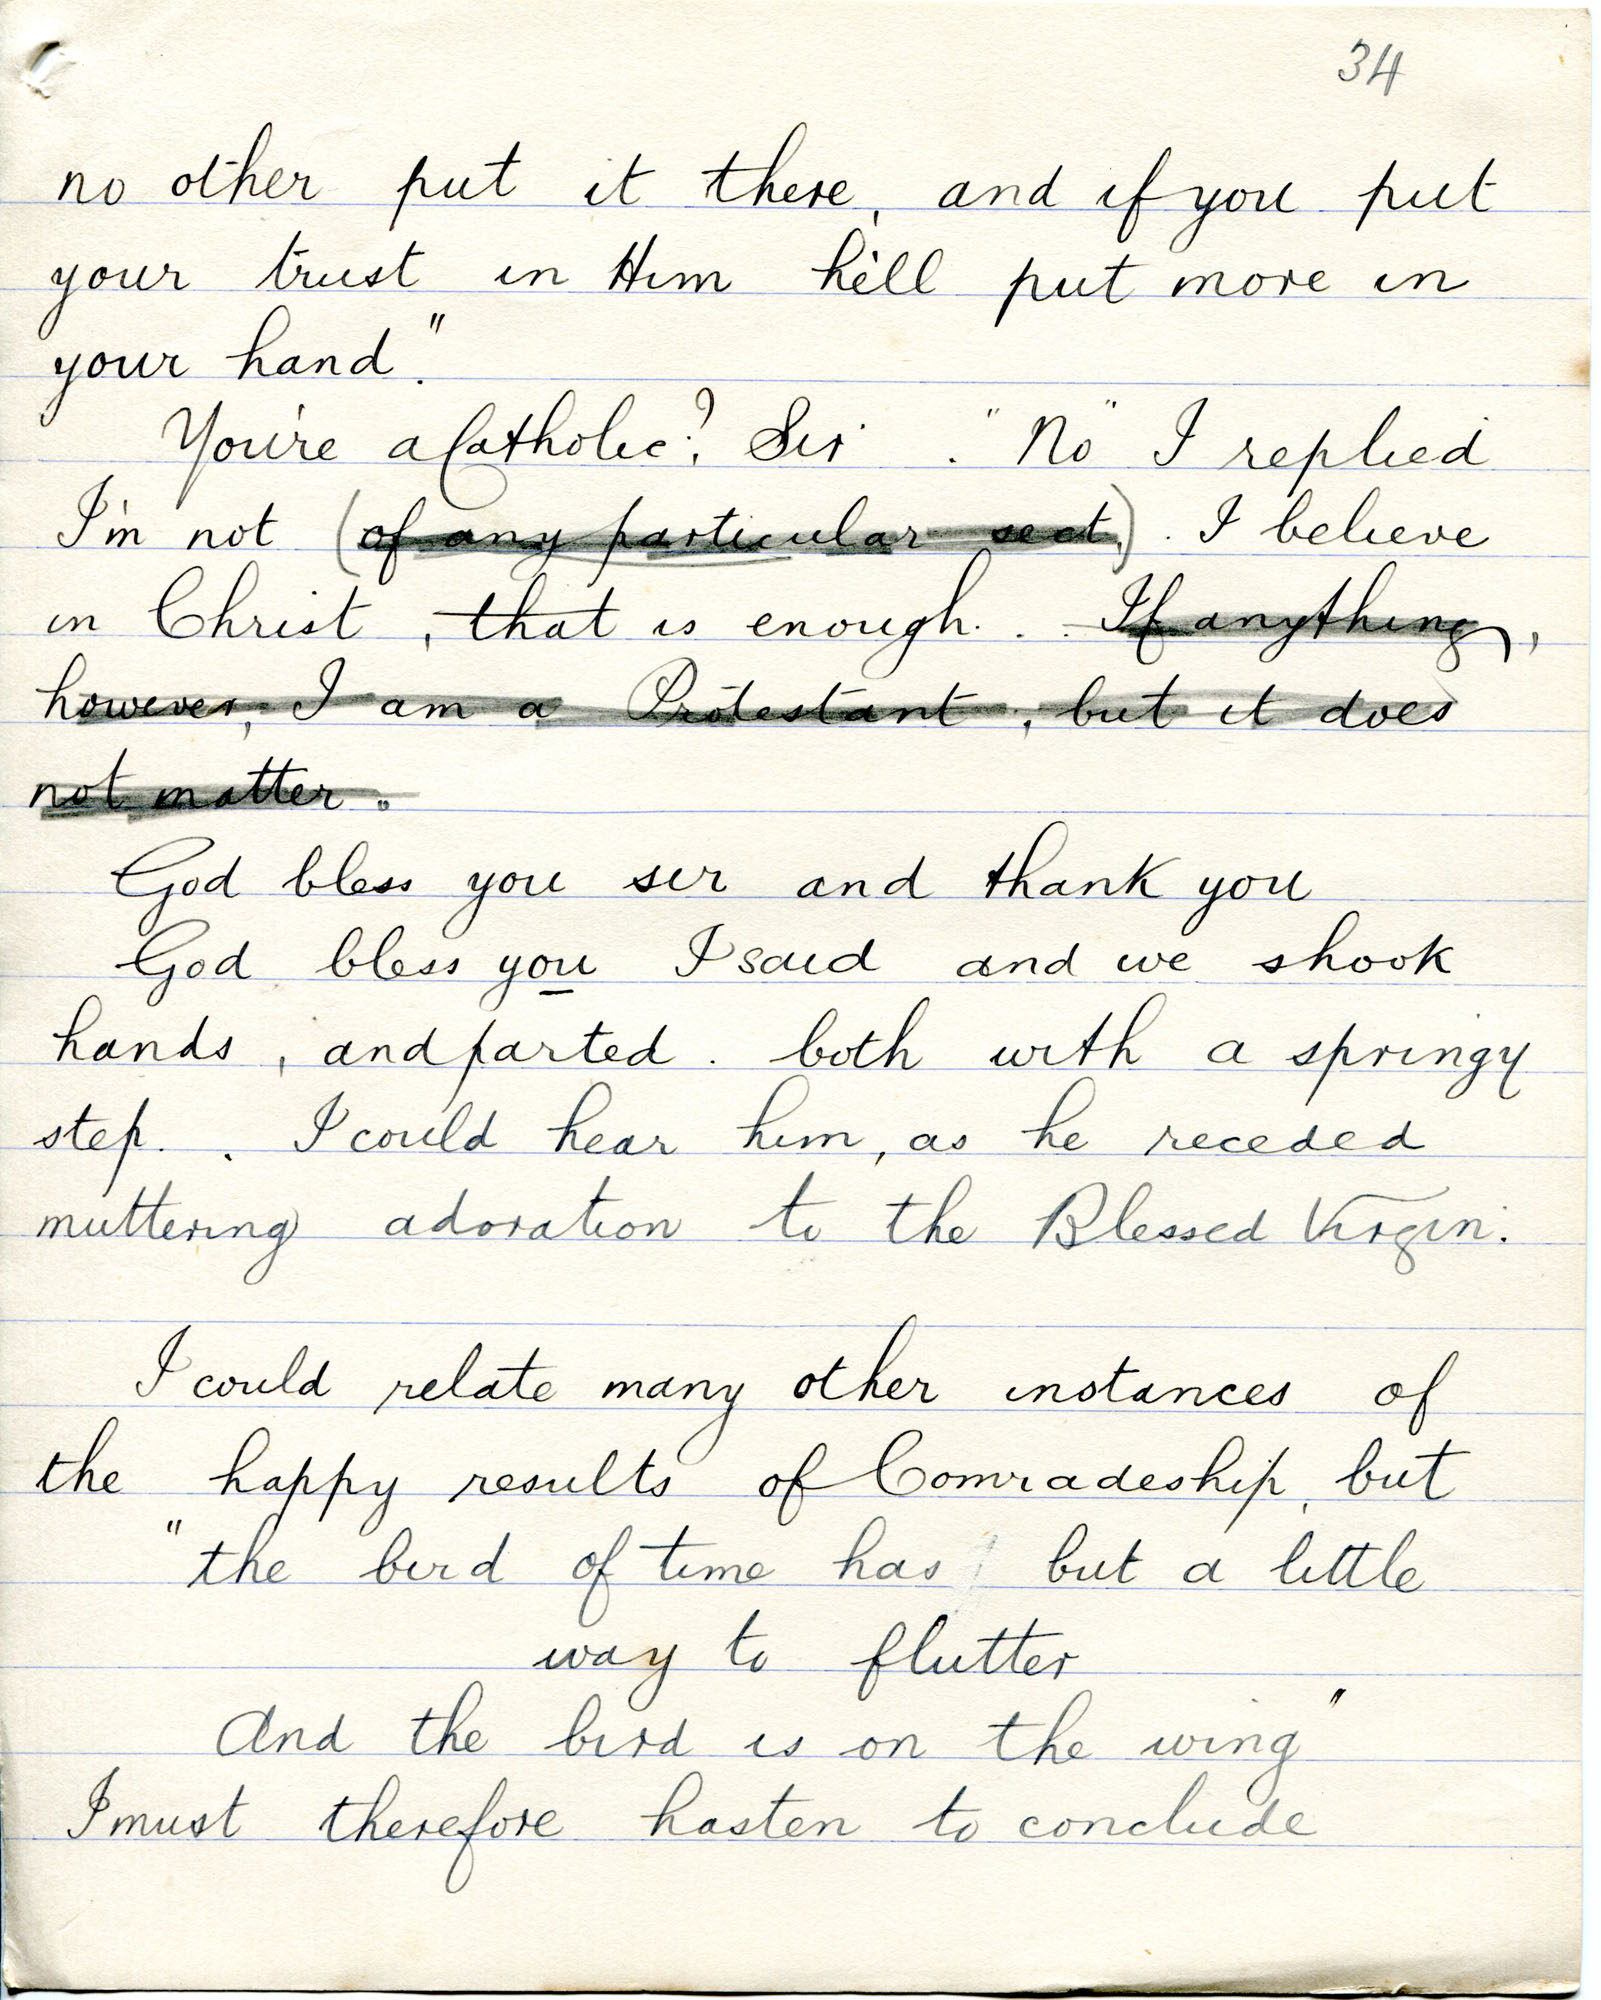 34
no other put it there, and if you put
your trust in Him he'll put more in
your hand."
You're a Catholic? Sir. "No" I replied
I'm not (of any particular sect.). I believe
in Christ, that is enough. . . If anything,
however, I am a Protestant, but it does
not matter.
God bless you sir and thank you
God bless you I said and we shook
hands, and parted. both with a springy
step. . I could hear him, as he receded
muttering adoration to the Blessed Virgin.
I could relate many other instances of
the happy results of Comradeship, but
"the bird of time has but a little
way to flutter
And the bird is on the wing"
I must therefore hasten to conclude